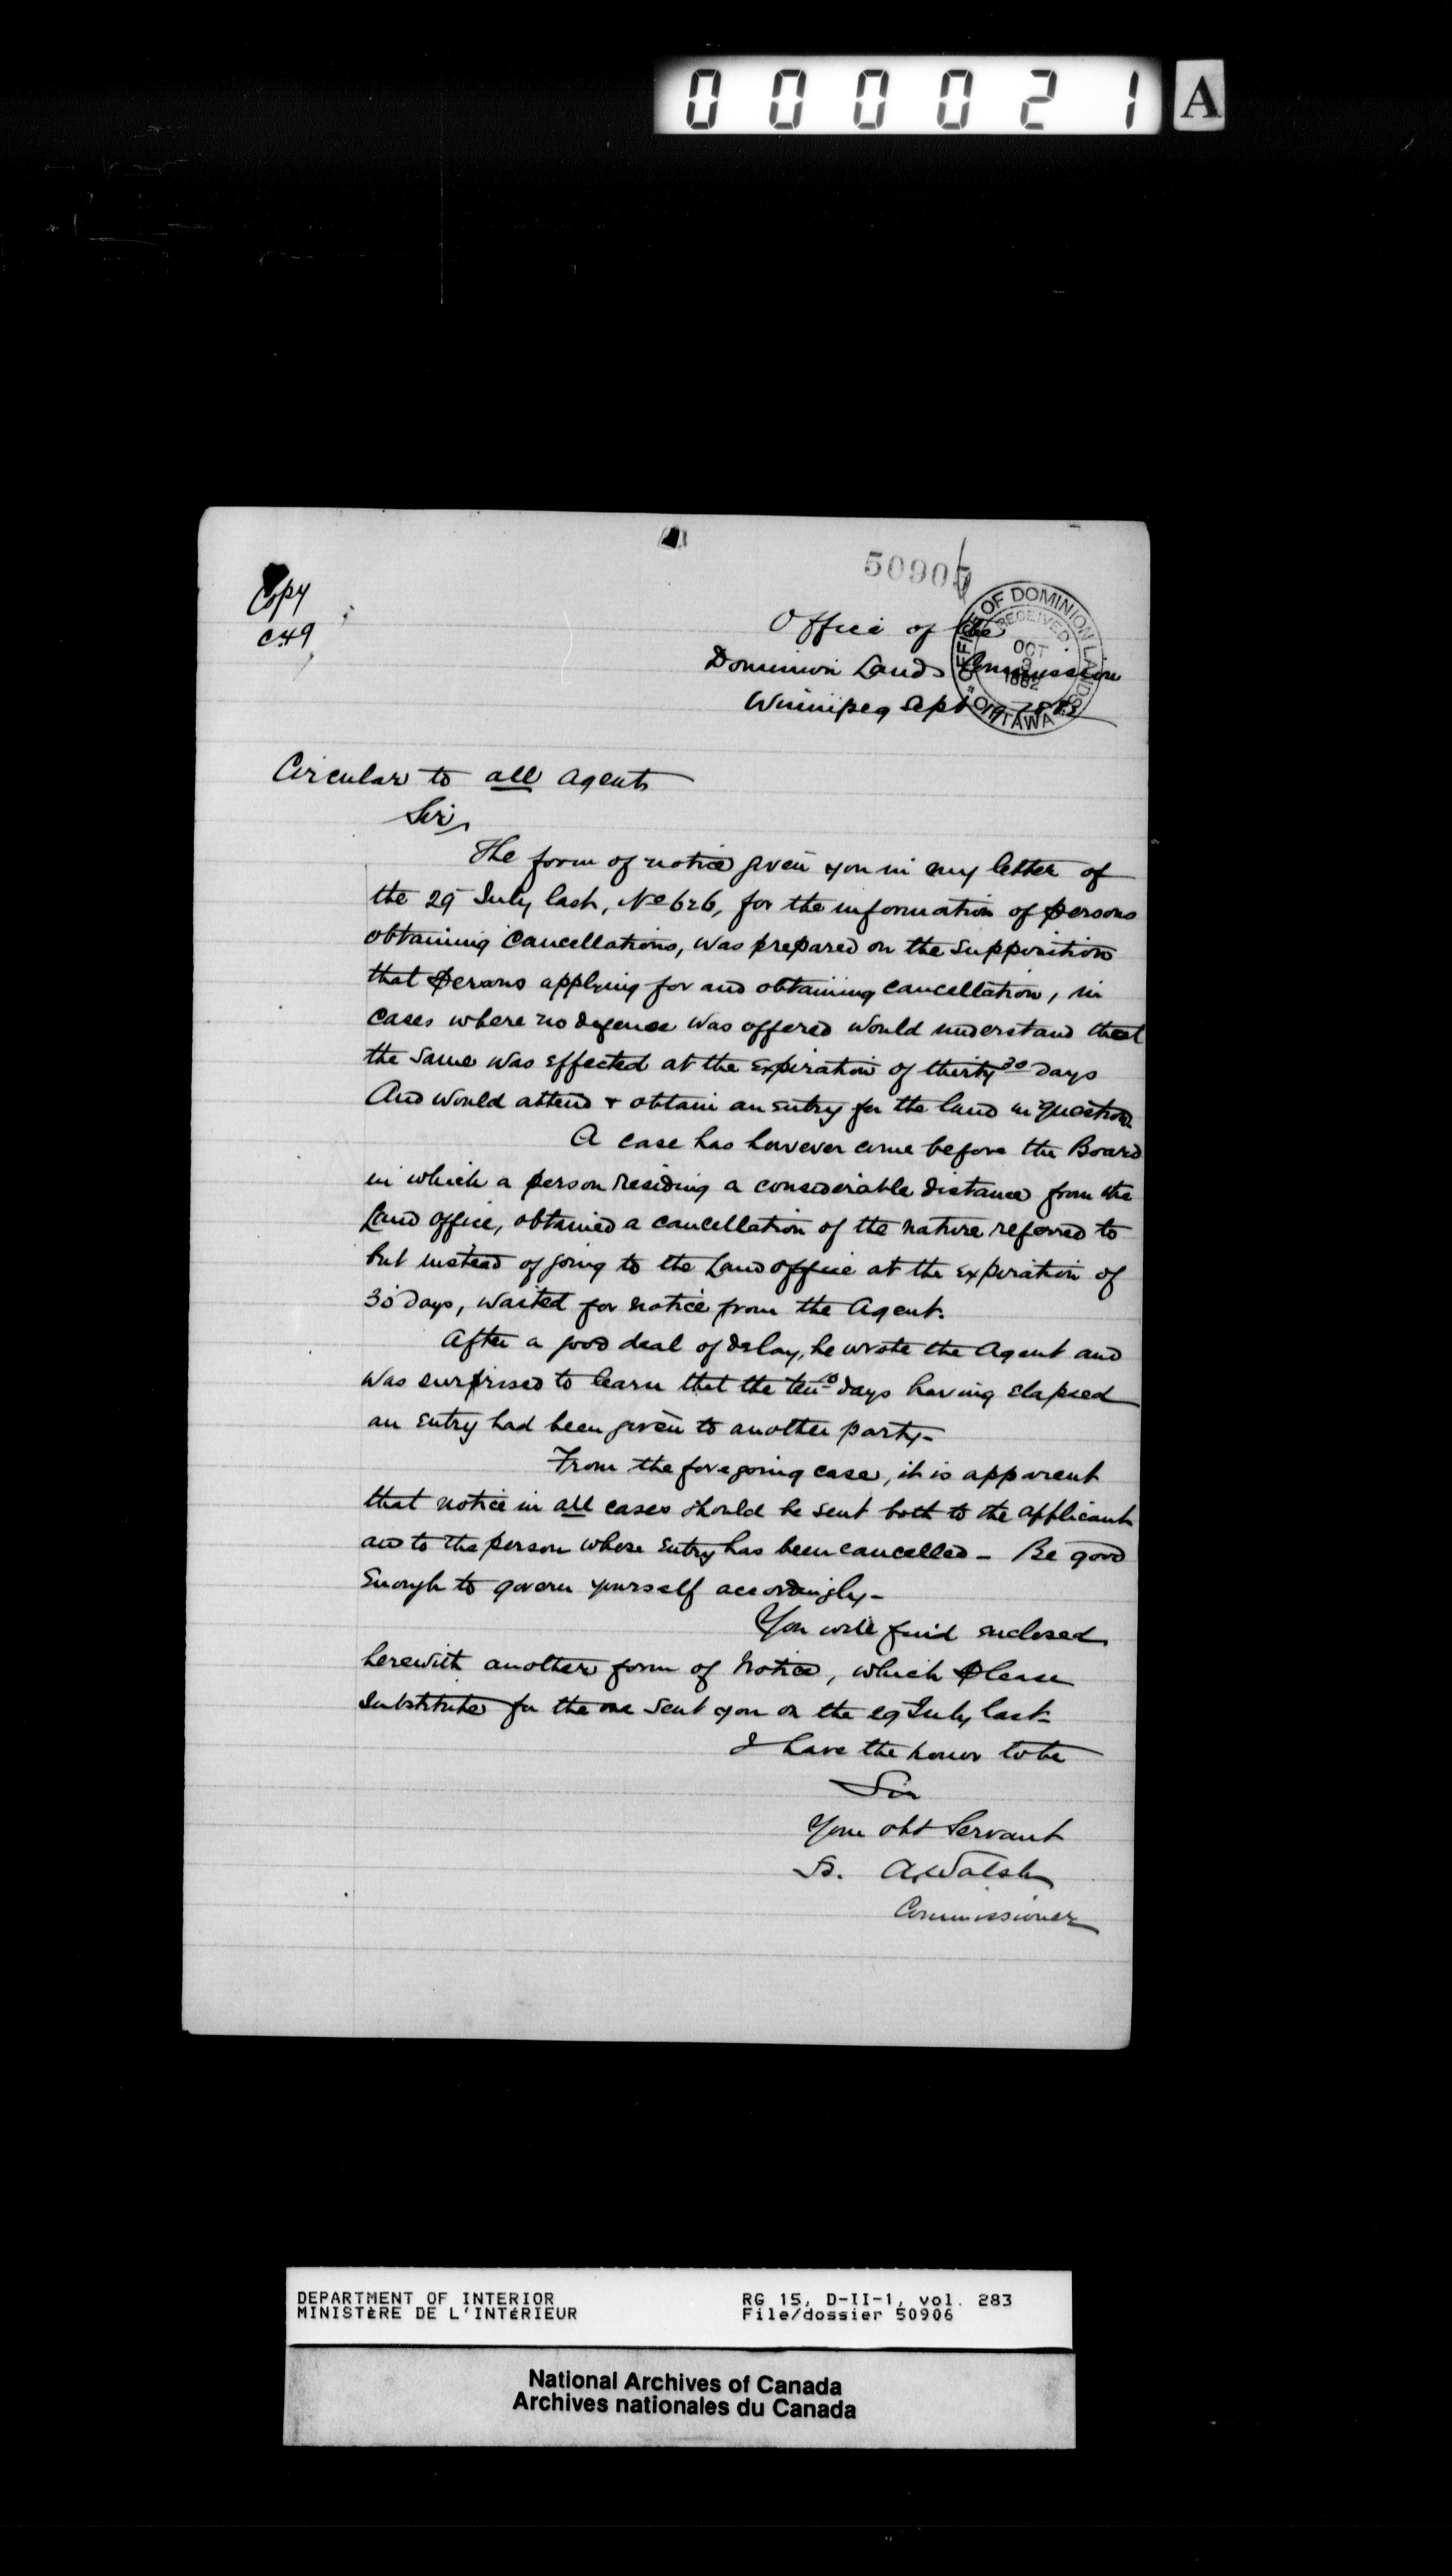 000021 A
50906
Copy
C49
OFFICE OF DOMINION LANDS OTTAWA
RECEIVED
OCT
3
1882
Office of the
Dominion Lands Commission
Winnipeg Sept 19 1882
Circular to all agents
Sir,
The form of notice given you in my letter of
the 29 July last, No 626, for the information of persons
obtaining Cancellations, was prepared on the supposition
that persons applying for and obtaining cancellation, in
Cases where no defence was offered would understand that
the same was effected at the expiration of thirty 30 days
And would attend + obtain an entry for the land in question
A case has however come before the Board
in which a person residing a considerable distance from the
Land office, obtained a cancellation of the nature referred to
but instead of going to the Land office at the expiration of
30 days, waited for notice from the Agent.
After a good deal of delay, he wrote the Agent and
was surprised to learn that the ten 10 days having elapsed
an entry had been given to another party-
From the foregoing case, it is apparent
that notice in all cases should be sent both to the applicant
and to the person whose entry has been cancelled - Be good
Enough to govern yourself accordingly-
You will find enclosed
herewith another form of Notice, which please
Substitute for the one sent you on the 29 July last-
I have the honor to be
Sir
Your obt Servant
A Walsh
Commissioner
DEPARTMENT OF INTERIOR
MINISTÈRE DE L'INTÉRIEUR
RG 15, D-II-1, vol. 283
File/dossier 50906
National Archives of Canada
Archives nationales du Canada